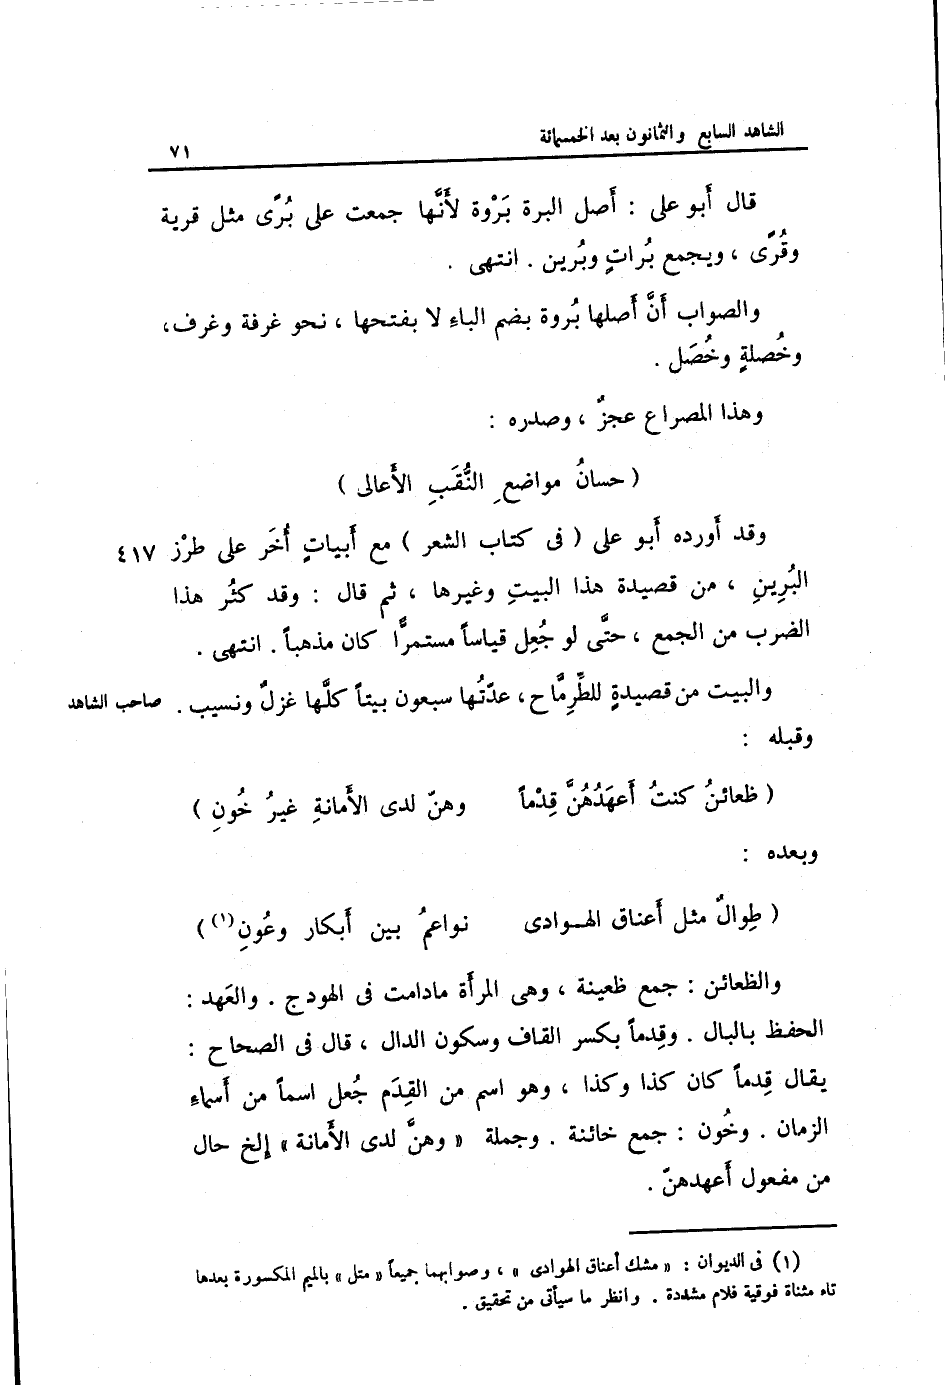 الشاهد السابع والثمانون بعد الخمسمائة ٧١
قال أبو على : أصل البرة بَرْوة لأَنَّها جمعت على بُرًى مثل قرية
وقُرًى ، ويجمع بُراتٍ وبُرين . انتهى .
والصواب أَنَّ أَصلها بُروة بضم الباءِ لا بفتحها ، نحو غرفة وغرف،
وخُصلةٍ وخُصَل .
وهذا المصراع عجزٌ ، وصدره :
( حسانُ مواضعِ النُّقَبِ الأَعالى )
وقد أَورده أَبو على ( فى كتاب الشعر ) مع أَبياتٍ أُخَر على طرْز ٤١٧
البُرِينِ ، من قصيدة هذا البيتِ وغيرها ، ثم قال : وقد كثُر هذا
الضرب من الجمع ، حتَّى لو جُعِل قياساً مستمرًّا كان مذهباً . انتهى .
والبيت من قصيدةٍ للطِّرِمَّاح ، عدّتُها سبعون بيتاً كلَّها غزلٌ ونسيب . صاحب الشاهد
وقبله :
( ظعائنُ كنتُ أَعهَدُهُنَّ قِدْماً وهنّ لدى الأَمانةِ غيرُ خُونِ )
وبعده :
( طِوالٌ مثل أَعناق الهـوادى نواعمُ بين أَبكار وعُونِ(١) )
والظعائن : جمع ظعينة ، وهى المرأَة مادامت فى الهودج . والعَهد :
الحفظ بالبال . وقِدماً بكسر القاف وسكون الدال ، قال فى الصحاح :
يقال قِدماً كان كذا وكذا ، وهو اسم من القِدَم جُعل اسماً من أَسماءِ
الزمان . وخُون : جمع خائنة . وجملة « وهنَّ لدى الأَمانة » إلخ حال
من مفعول أَعهدهنّ .
(١) فى الديوان : « مشك أعناق الهوادى » ، وصوابهما جميعاً « متل » بالميم المكسورة بعدها
تاء مثناة فوقية فلام مشددة . وانظر ما سيأتى من تحقيق .